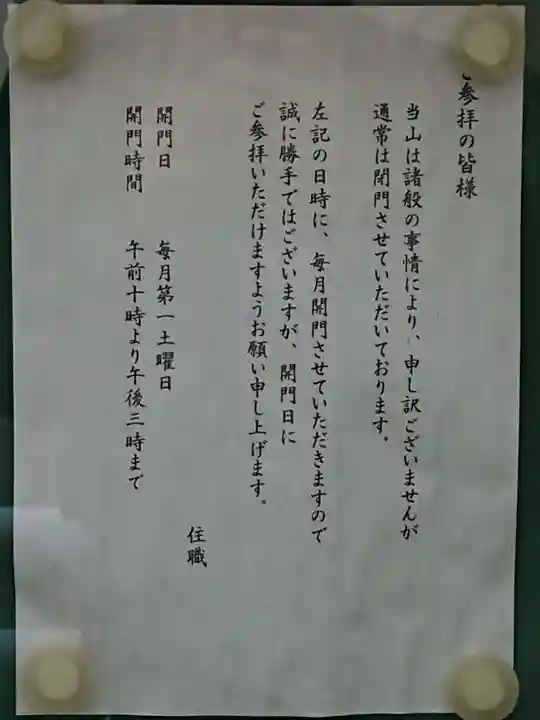 ご参拝の皆様
当山は諸般の事情により、申し訳ございませんが
通常は閉門させていただいております。
左記の日時に、毎月開門させていただきますので
誠に勝手ではございますが、開門日に
ご参拝いただけますようお願い申し上げます。
住職
開門日 毎月第一土曜日
開門時間 午前十時より午後三時まで